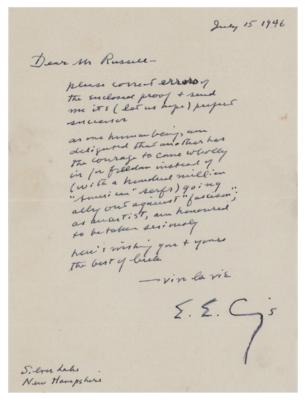 July 15 1946
Dear Mr Russell—
please correct errors of
the enclosed proof & send
me its (let us hope) perfect
successor
as one human being, am
delighted that another has
the courage to come wholly
in/or freedom instead of
(with a hundred million
"American" serfs) going
ally out against "fascism";
as an artist, am honoured
to be taken seriously
here's wishing you & yours
the best of luck
—viva la vie
E. E.
Silver Lake
New Hampshire